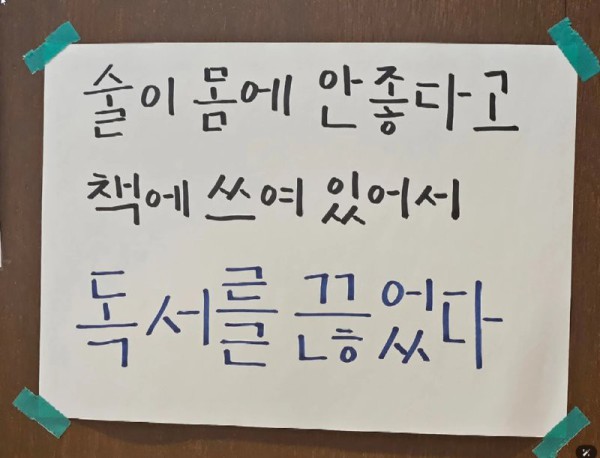 술이 몸에 안좋다고
책에 쓰여 있어서
독서를 끊었다